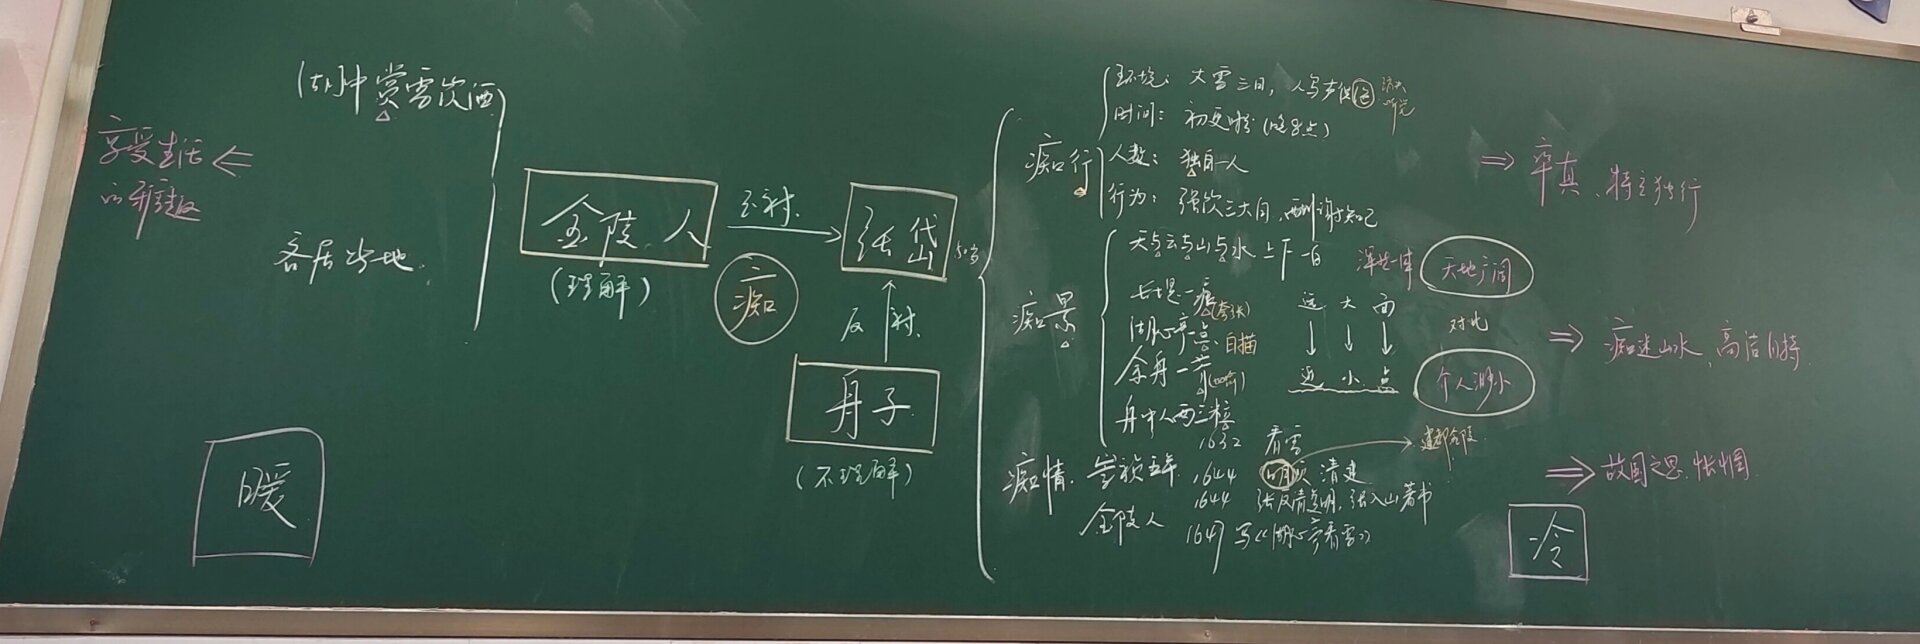 湖中赏雪饮酒
享受生活
的雅趣
客居当地
暖
金陵人
(理解)
正衬
痴
张岱
反衬
舟子
(不理解)
痴行
环境：大雪三日，人鸟声俱绝
听觉
时间：初更 (晚8点)
人数：独自一人
行为：强饮三大白，酬谢知己
率真、特立独行
痴景
天与云与山与水 上下一白
浑然一体
天地广阔
长堤一痕(夸张)
湖心亭一点
白描
余舟一芥(比喻)
舟中人两三粒
远 大 面
近 小 点
对比
个人渺小
痴迷山水、高洁自持
痴情
崇祯五年
金陵人
1632 看雪
1644 明灭 清建
建都金陵
1644 张反清复明，张入山著书
1647 写《湖心亭看雪》
故国之思、怅惘
冷